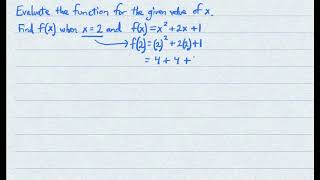 Evaluate the function for the given value of x.
Find f(x) when x = 2 and f(x) = x² + 2x + 1
f(2) = (2)² + 2(2) + 1
= 4 + 4 +